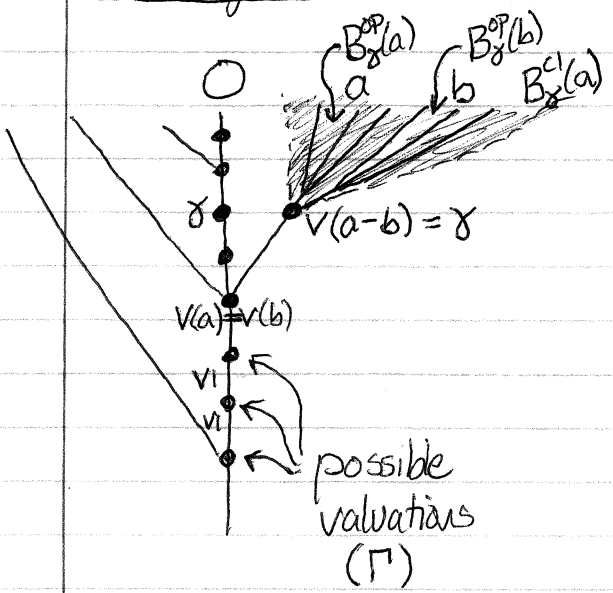 B^op_γ(a)
B^op_γ(b)
B^cl_γ(a)
O
a
b
γ
v(a-b) = γ
v(a)=v(b)
VI
VI
possible
valuations
(Γ)